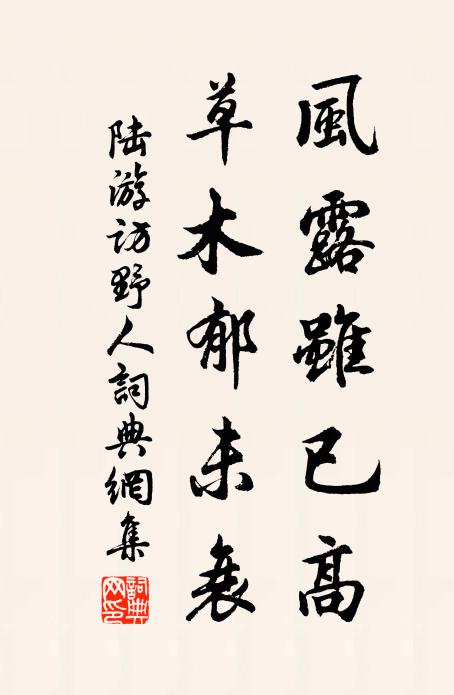 風露雖已高
草木郁未衰
陸游訪野人詞典網集
詞典網印